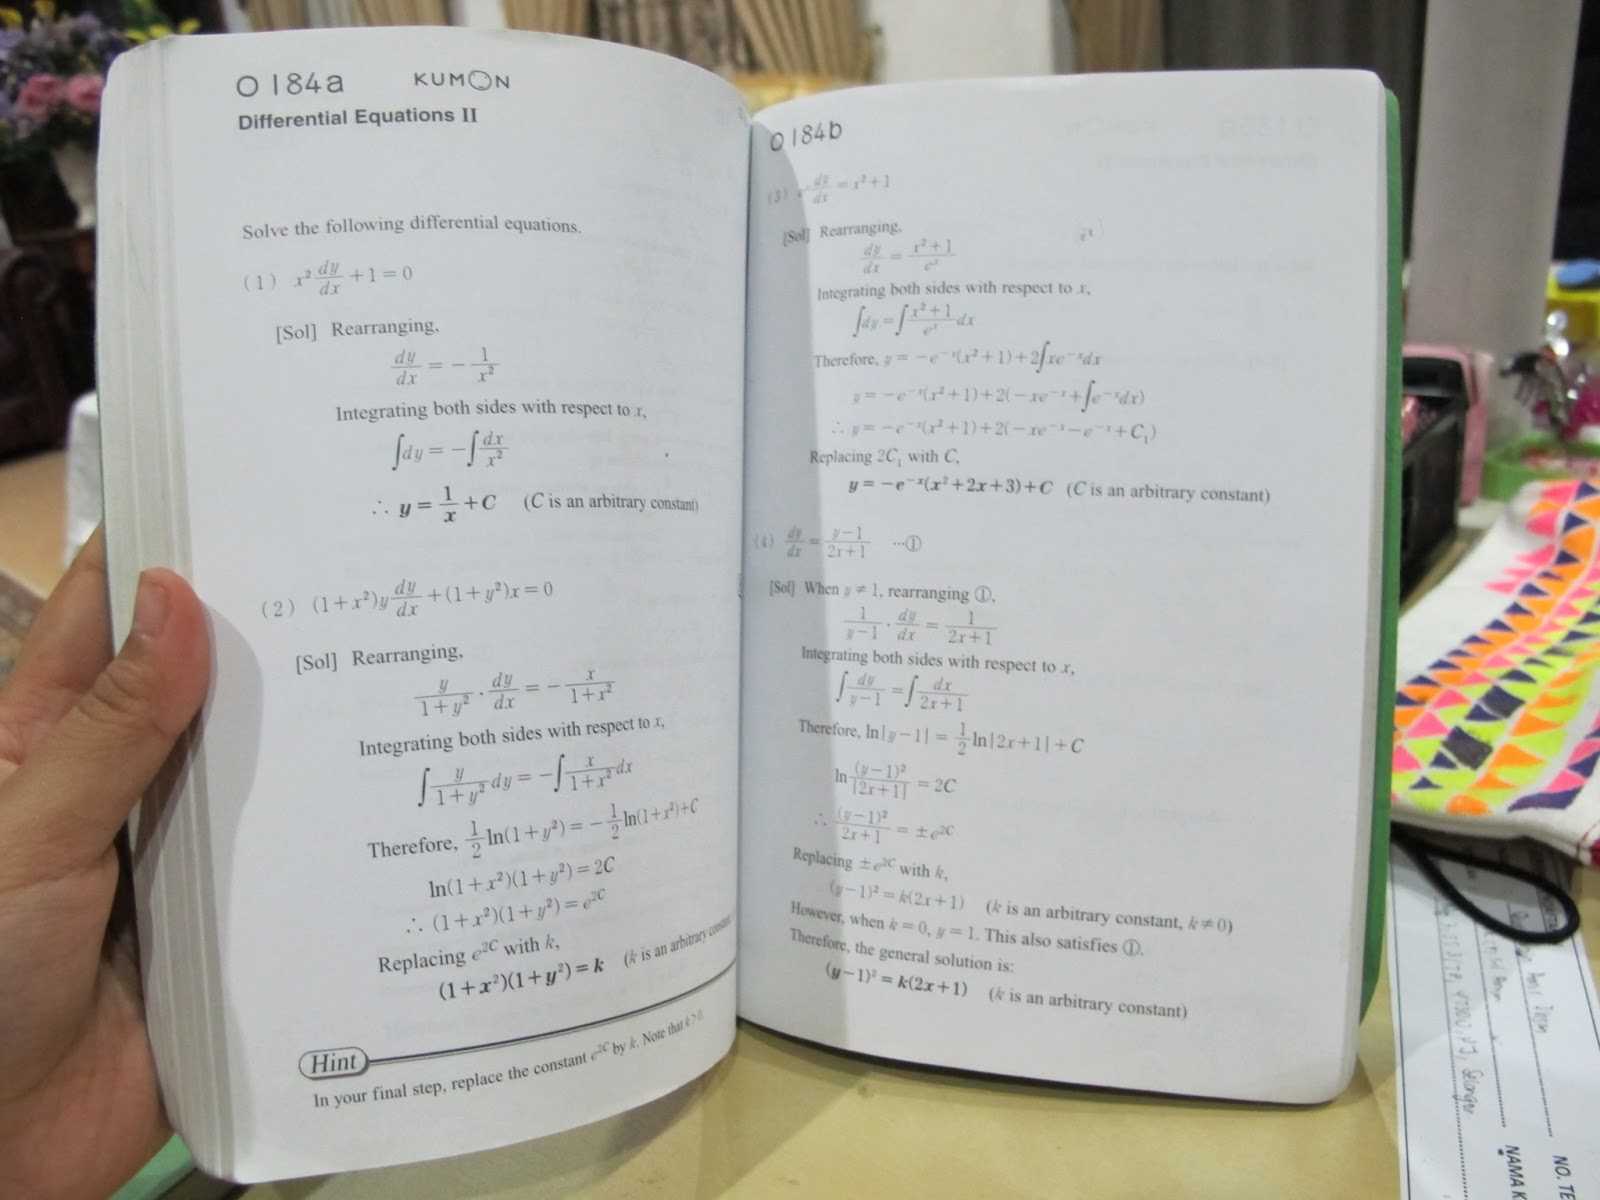 O 184a KUMON
Differential Equations II
Solve the following differential equations.
(1) x² dy/dx + 1 = 0
[Sol] Rearranging,
dy/dx = − 1/x²
Integrating both sides with respect to x,
∫dy = −∫dx/x²
∴ y = 1/x + C (C is an arbitrary constant)
(2) (1+x²)y dy/dx + (1+y²)x = 0
[Sol] Rearranging,
y/(1+y²) · dy/dx = − x/(1+x²)
Integrating both sides with respect to x,
∫ y/(1+y²) dy = −∫ x/(1+x²) dx
Therefore, 1/2 ln(1+y²) = − 1/2 ln(1+x²)+C
ln(1+x²)(1+y²) = 2C
∴ (1+x²)(1+y²) = e²ᶜ
Replacing e²ᶜ with k,
(1+x²)(1+y²) = k (k is an arbitrary
Hint
In your final step, replace the constant e²ᶜ by k. Note that k > 0.
O 184b
(3) dy/dx = x²+1
[Sol] Rearranging,
dy/dx = (x²+1)/eˣ
Integrating both sides with respect to x,
∫dy = ∫(x²+1)/eˣ dx
Therefore, y = −e⁻ˣ(x²+1)+2∫xe⁻ˣdx
y = −e⁻ˣ(x²+1)+2(−xe⁻ˣ+∫e⁻ˣdx)
∴ y = −e⁻ˣ(x²+1)+2(−xe⁻ˣ−e⁻ˣ+C₁)
Replacing 2C₁ with C,
y = −e⁻ˣ(x²+2x+3)+C (C is an arbitrary constant)
(4) dy/dx = (y−1)/(2x+1) ···①
[Sol] When y ≠ 1, rearranging ①,
1/(y−1) · dy/dx = 1/(2x+1)
Integrating both sides with respect to x,
∫dy/(y−1) = ∫dx/(2x+1)
Therefore, ln|y−1| = 1/2 ln|2x+1| + C
ln (y−1)²/|2x+1| = 2C
∴ (y−1)²/(2x+1) = ±e²ᶜ
Replacing ±e²ᶜ with k,
(y−1)² = k(2x+1) (k is an arbitrary constant, k ≠ 0)
However, when k = 0, y = 1. This also satisfies ①.
Therefore, the general solution is:
(y−1)² = k(2x+1) (k is an arbitrary constant)
Selangor
NAMA
NO. TE